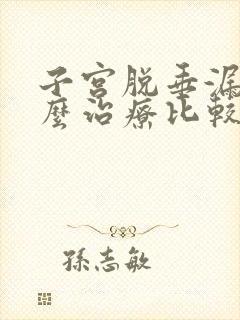 子宮脱垂漏
麼治療比較
孫志敏